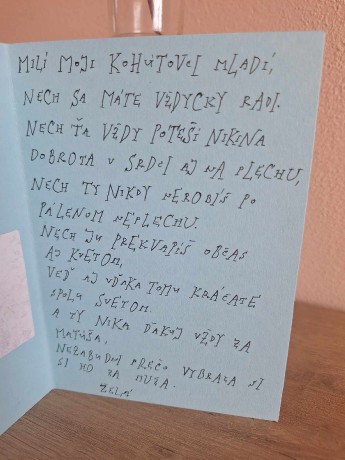 MILÍ MOJI KOHÚTOVCI MLADÍ,
NECH SA MÁTE VŽDYCKY RADI.
NECH ŤA VŽDY POTEŠÍ NIKINA
DOBROTA V SRDCI AJ NA PLECHU,
NECH TY NIKDY NEROBÍŠ PO
PÁLENOM NEPLECHU.
NECH JU PREKVAPÍŠ OBČAS
AJ KVETOM,
VEĎ AJ VĎAKA TOMU KRÁČATE
SPOLU SVETOM.
A TY NIKA ĎAKUJ VŽDY ZA
MATÚŠA,
NEZABUDNI PREČO VYBRALA SI
SI HO ZA MUŽA.
ŽELÁ